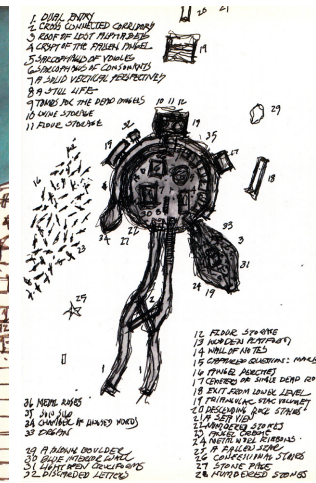 1. DUAL ENTRY
2 CROSS CONNECTED CORRIDORS
3 ROOF OF LOST ALPHABETS
4 CRYPT OF THE FALLEN ANGEL
5 SARCOPHAGUS OF VOWELS
6 SARCOPHAGUS OF CONSONANTS
7 A SOLID VERTICAL PERSPECTIVE
8 A STILL LIFE
9 TOMBS FOR THE DEAD ANGELS
10 WINE STORAGE
11 FLOUR STORAGE
21
19
10 11 12
29
32
35
19
18
16
23
34
27
22
33
3
31
24
19
25
2
1
1
12 FLOUR STORAGE
13 WOODEN PLATFORM
14 WALL OF NOTES
15 CAPTURED QUESTION:
16 ANGEL
17 CEMETERY OF SINGLE DEAD
18 EXIT FROM LOWER LEVEL
19 TRIANGULAR STAR VOLUMES
20 DESCENDING ROCK STAIRS
21 A SEA VIEW
22 MURDERED STONES
23 ANGEL GROUND
24 METAL RIBBONS
25 A FALLEN STAR
26 CONFESSIONAL STONES
27 STONE FACE
28 MURDERED STONES
36 METAL ROSES
35 SOLO SILO
34 CHAMBER OF UNUSED WORDS
33 ORGAN
29 A BOULDER
30 BLUE INTERIOR WALL
31 LIGHT OPEN CRUCIFORMS
32 DISCARDED LETTERS